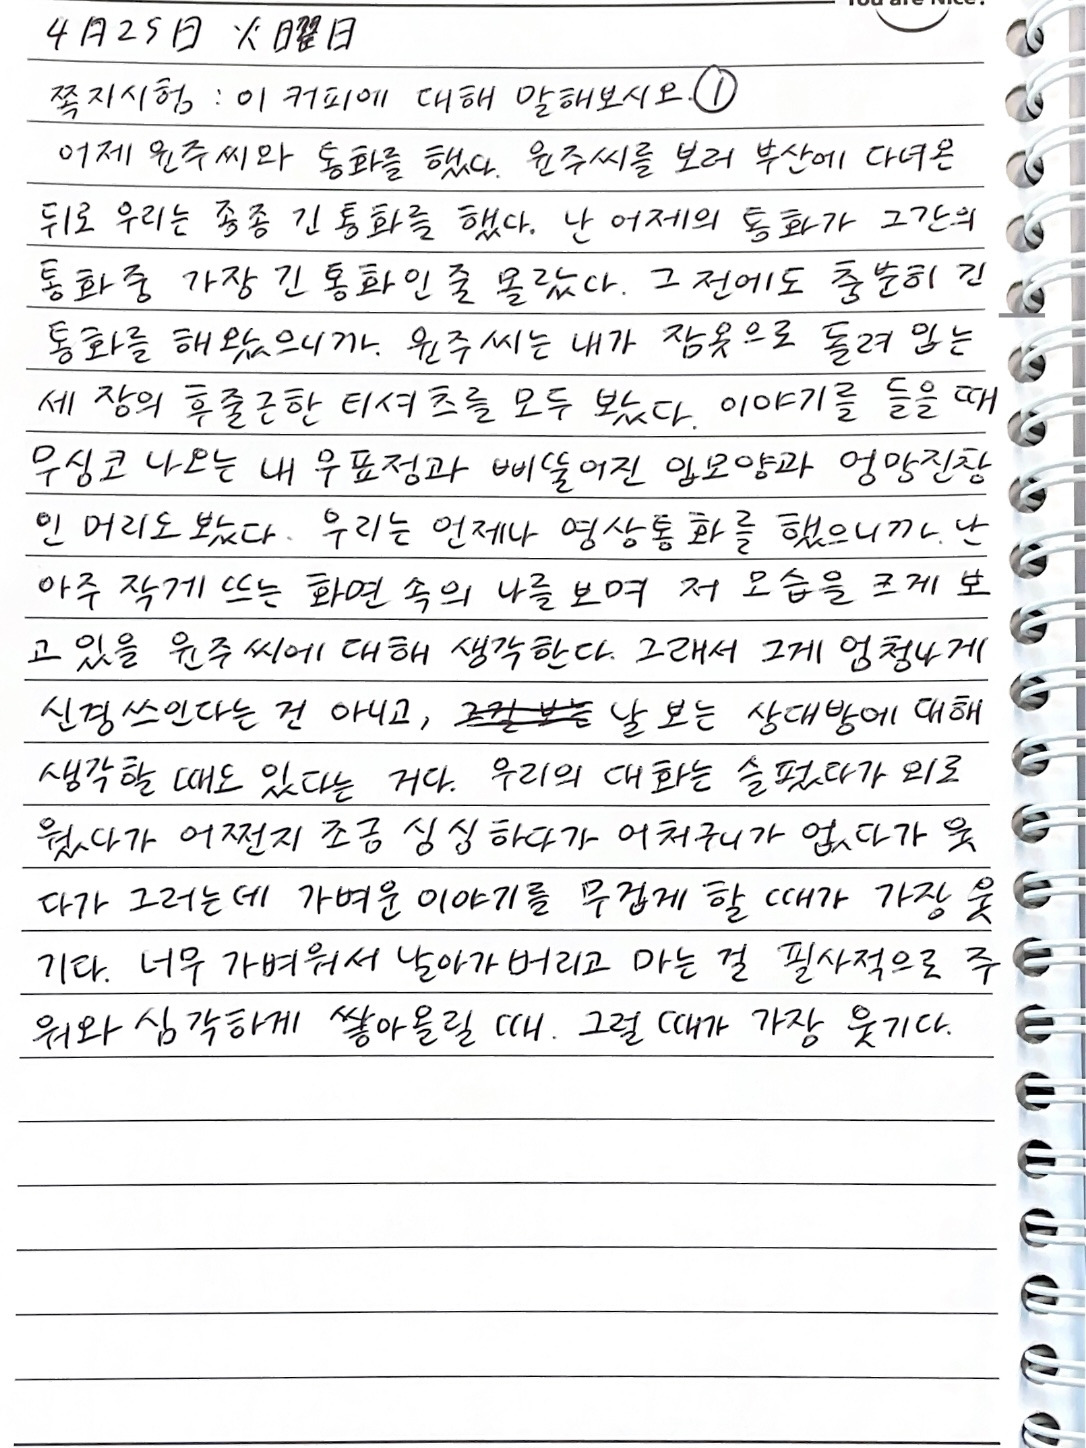 You are Nice!
4月25日 火曜日
쪽지시험 : 이 커피에 대해 말해보시오. ①
어제 원주씨와 통화를 했다. 원주씨를 보러 부산에 다녀온
뒤로 우리는 종종 긴 통화를 했다. 난 어제의 통화가 그간의
통화중 가장 긴 통화인 줄 몰랐다. 그 전에도 충분히 긴
통화를 해왔으니까. 원주씨는 내가 잠옷으로 돌려 입는
세 장의 후줄근한 티셔츠를 모두 봤다. 이야기를 들을 때
무심코 나오는 내 무표정과 삐뚤어진 입모양과 엉망진창
인 머리도 봤다. 우리는 언제나 영상통화를 했으니까. 난
아주 작게 뜨는 화면 속의 나를 보며 저 모습을 크게 보
고 있을 원주씨에 대해 생각한다. 그래서 그게 엄청나게
신경쓰인다는 건 아니고, 날 보는 상대방에 대해
생각할 때도 있다는 거다. 우리의 대화는 슬펐다가 외로
웠다가 어쩐지 조금 심심하다가 어처구니가 없다가 웃
다가 그러는데 가벼운 이야기를 무겁게 할 때가 가장 웃
기다. 너무 가벼워서 날아가버리고 마는 걸 필사적으로 주
워와 심각하게 쌓아올릴 때. 그럴 때가 가장 웃기다.